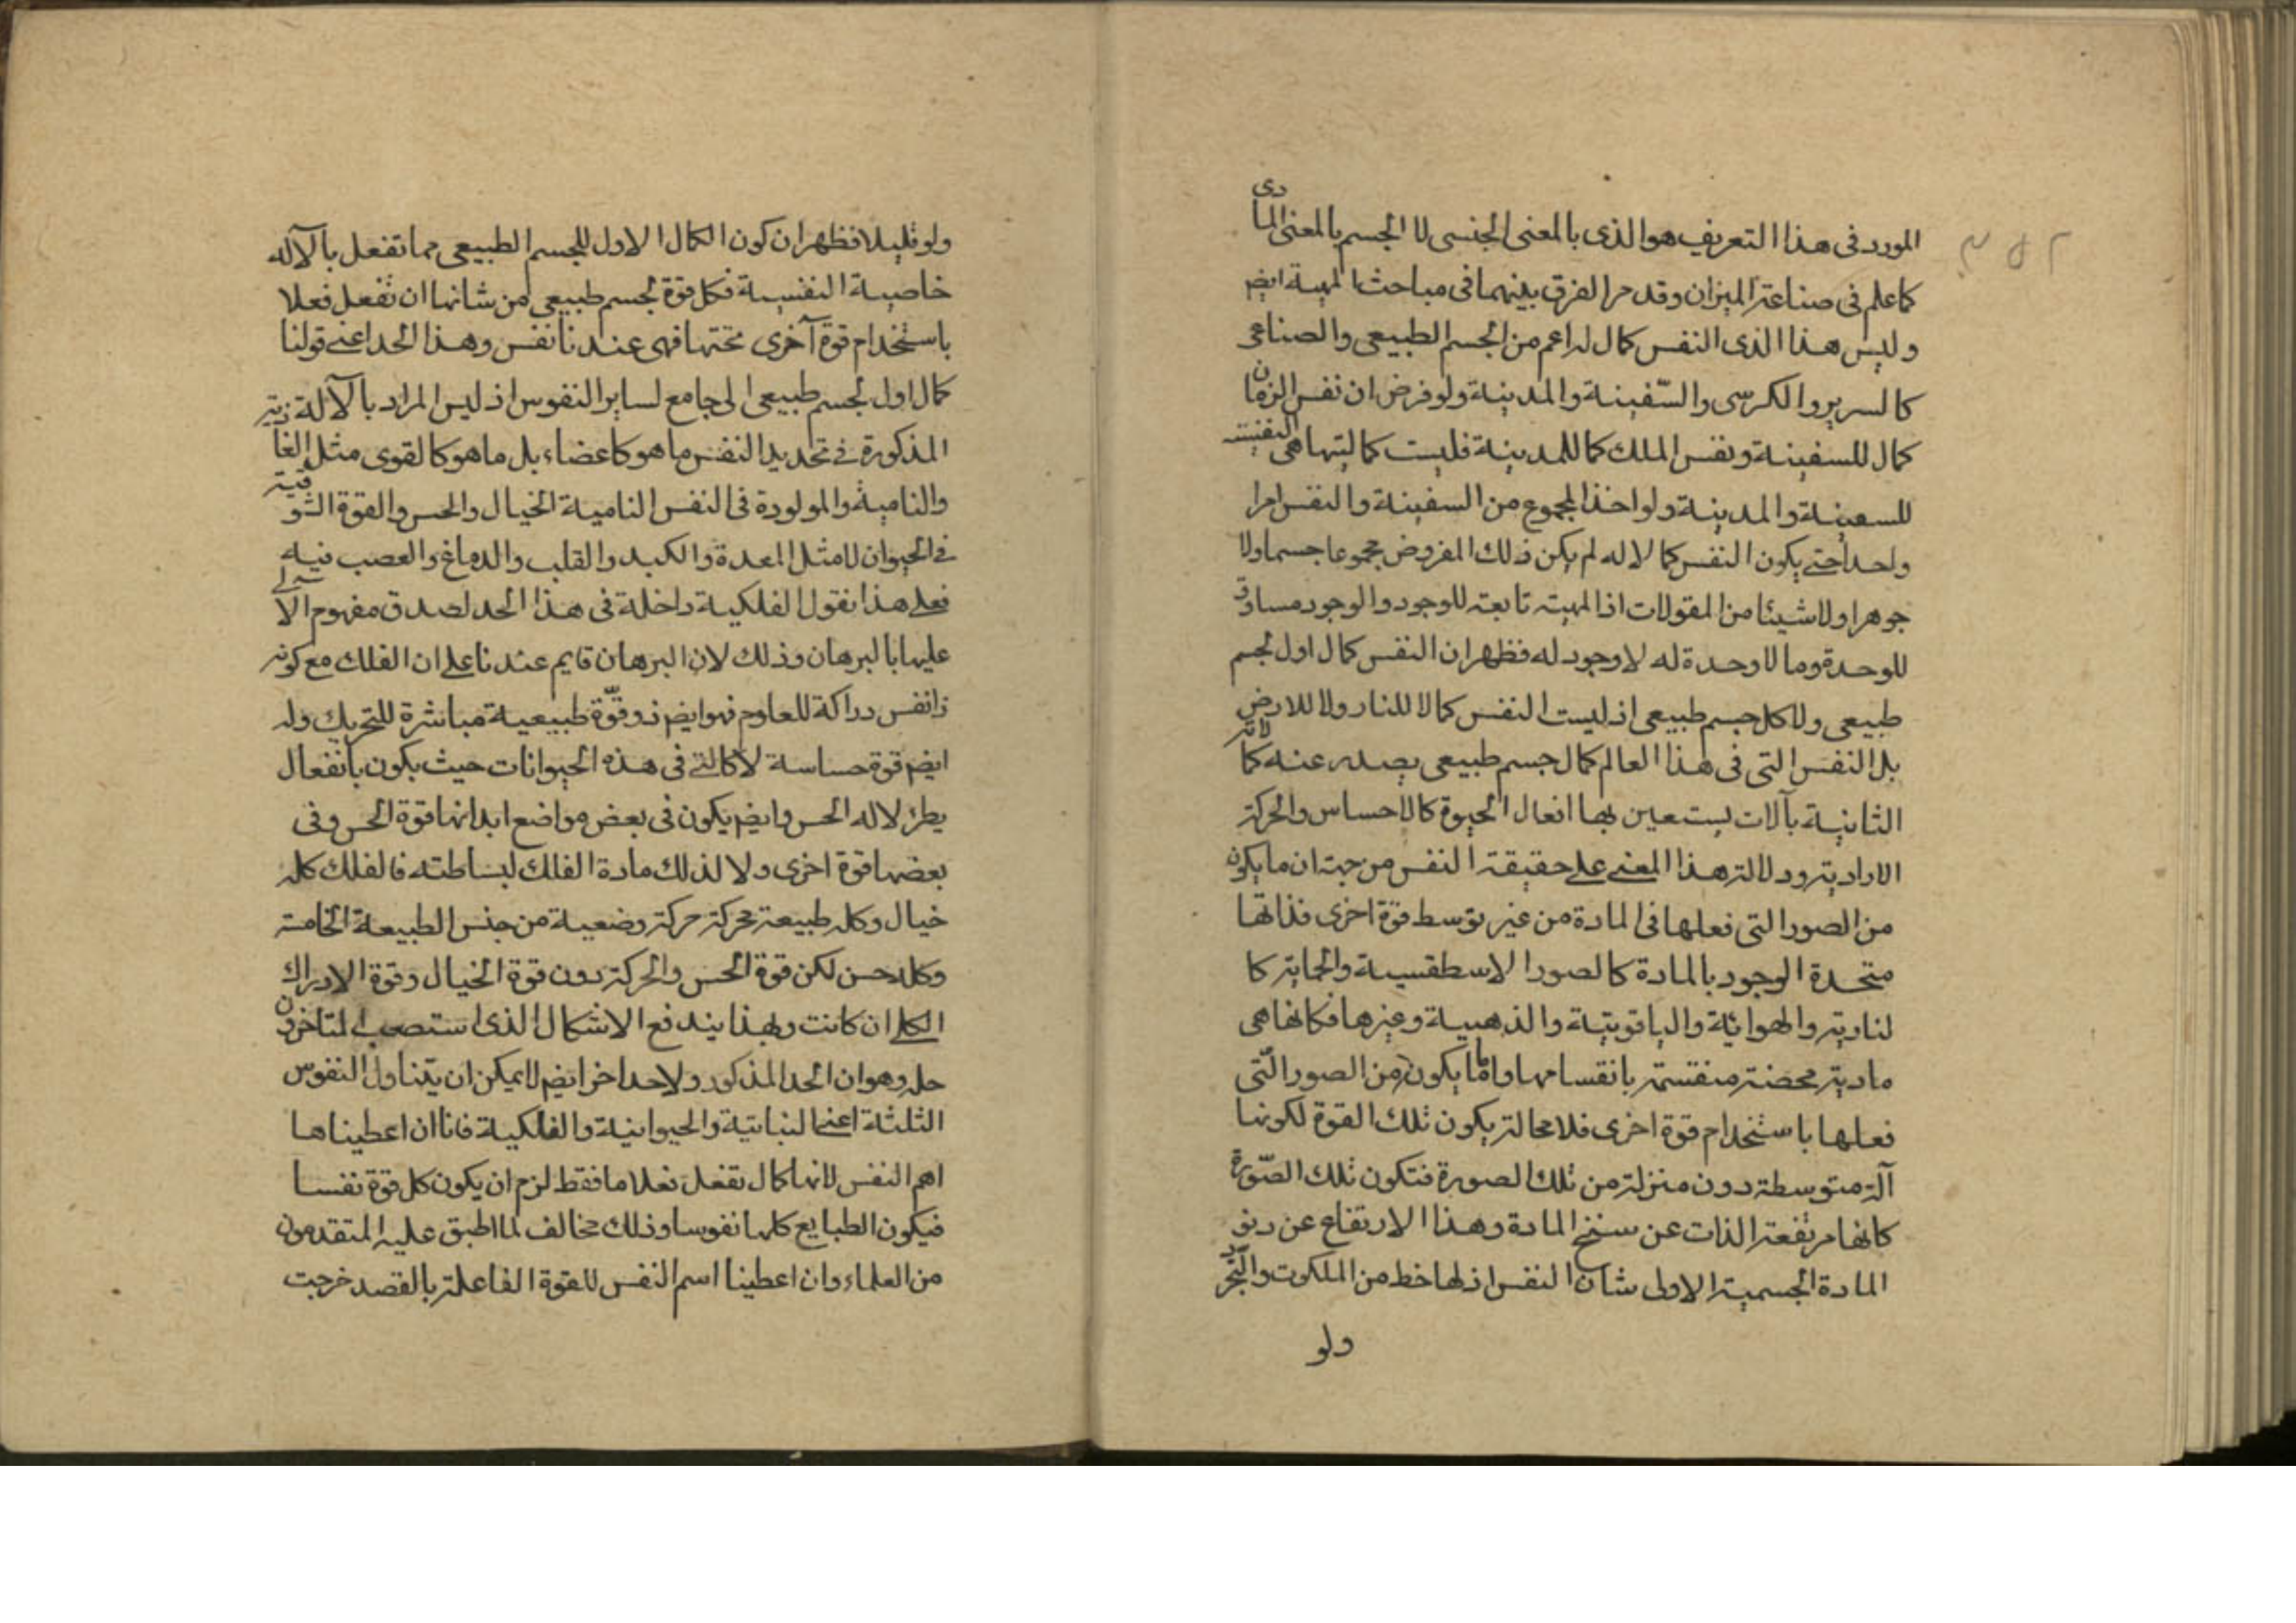 المورد فى هذا التعريف هو الذى بالمعنى الجنسى لا الجسم بالمعنى المادى
كما علم فى صناعة الميزان وقد مر الفرق بينهما فى مباحث المهية ايضم
وليس هذا الذى النفس كمال له اعم من الجسم الطبيعى والصناعى
كالسرير والكرسى والسّفينة والمدينة ولو فرض ان نفس الربان
كمال للسفينة ونفس الملك كما للمدينة فليست كماليتها هى النفسية
للسفينة والمدينة ولو اخذ المجموع من السفينة والنفس امرا
واحدا حتى يكون النفس كمالا له لم يكن ذلك المفروض مجموعا جسما ولا
جوهرا ولا شيئا من المقولات اذ المهية تابعة للوجود والوجود مساوق
للوحدة وما لا وحدة له لا وجود له فظهر ان النفس كمال اول لجسم
طبيعى ولا كل جسم طبيعى اذ ليست النفس كمالا للنار ولا للارض
بل النفس التى فى هذا العالم كمال جسم طبيعى يصدر عنه كمالاته
الثانية بآلات يستعين بها افعال الحيوة كالاحساس والحركة
الارادية ودلالة هذا المعنى على حقيقة النفس من جهة ان ما يكون
من الصور التى فعلها فى المادة من غير توسط قوة اخرى فذاتها
متحدة الوجود بالمادة كالصور الاسطقسية والجمادية كا
لنارية والهوائية والياقوتية والذهبية وغيرها فكانها هى
مادية محضة منقسمة بانقسامها واما ما يكون من الصور الّتى
فعلها باستخدام قوة اخرى فلا محالة يكون تلك القوة لكونها
آلة متوسطة دون منزلة من تلك الصورة فتكون تلك الصّورة
كانها مرتفعة الذات عن سنخ المادة وهذا الارتفاع عن دنو
المادة الجسمية الاولى شان النفس اذ لها حظ من الملكوت والتّجرد
ولو
ولو قليلا فظهر ان كون الكمال الاول للجسم الطبيعى مما تفعل بالآله
خاصية النفسية فكل قوة لجسم طبيعى من شانها ان تفعل فعلا
باستخدام قوة آخرى تحتها فهى عندنا نفس وهذا الحد اعنى قولنا
كمال اول لجسم طبيعى الى جامع لساير النفوس اذ ليس المراد بالآلة
المذكورة فى تحديد النفس ما هو كاعضاء بل ما هو كالقوى مثل الغاذية
والنامية والمولودة فى النفس النامية الخيال والحس والقوة الشوقية
فى الحيوان لا مثل المعدة والكبد والقلب والدماغ والعصب فيه
فعلى هذا نقول الفلكية داخلة فى هذا الحد لصدق مفهوم الآلى
عليها بالبرهان وذلك لان البرهان قايم عندنا على ان الفلك مع كونه
ذا نفس دراكة للعلوم فهو ايضم ذو قوّة طبيعية مباشرة للتحريك وله
ايضم قوة حساسة لا كالتى فى هذه الحيوانات حيث يكون بانفعال
يطرء لاله الحس وايضم يكون فى بعض مواضع ابدانها قوة الحس وفى
بعضها قوة اخرى ولا لذلك مادة الفلك لبساطته فالفلك كله
خيال وكله طبيعة محركة حركة وضعية من جنس الطبيعة الخامسة
وكله حس لكن قوة الحس والحركة دون قوة الخيال وقوة الادراك
الكلى ان كانت وبهذا يندفع الاشكال الذى استصعب المتاخرون
حله وهو ان الحد المذكور ولا حد اخر ايضم لا يمكن ان يتناول النفوس
الثلثة اعنى النباتية والحيوانية والفلكية فانا ان اعطيناها
اسم النفس لانها كمال تفعل فعلا ما فقط لزم ان يكون كل قوة نفسا
فيكون الطبايع كلها نفوسا وذلك مخالف لما اطبق عليه المتقدمون
من العلماء وان اعطينا اسم النفس للقوة الفاعلة بالقصد خرجت